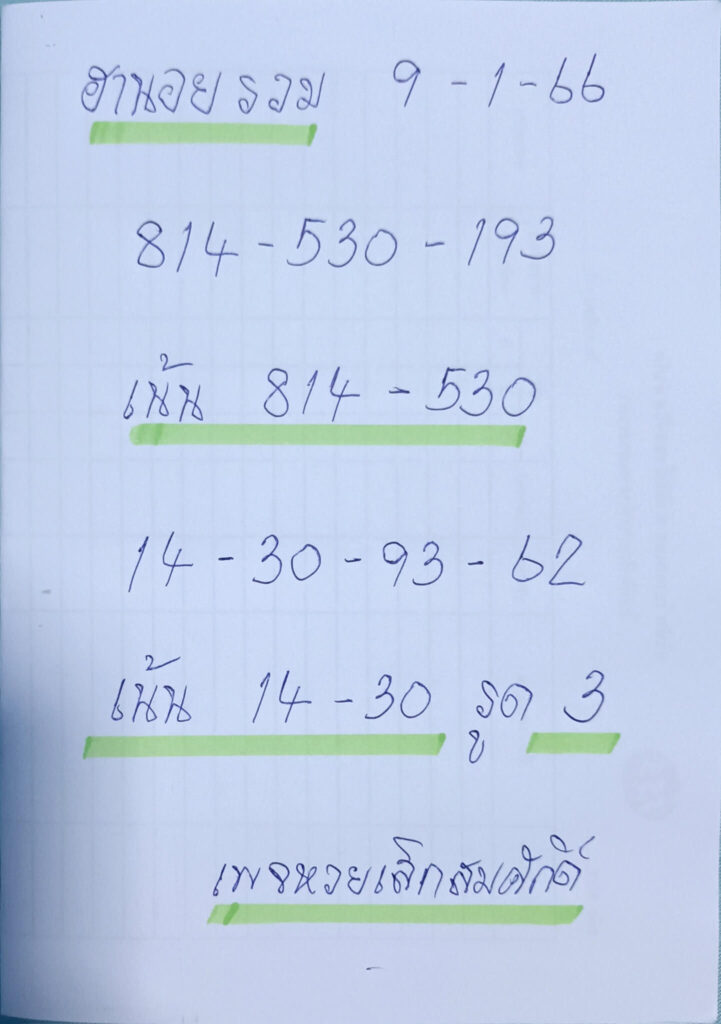 ฮานอย รวม 9-1-66
814-530-193
เน้น 814-530
14-30-93-62
เน้น 14-30 รูด 3
เพจหวยเลิกสมศักดิ์